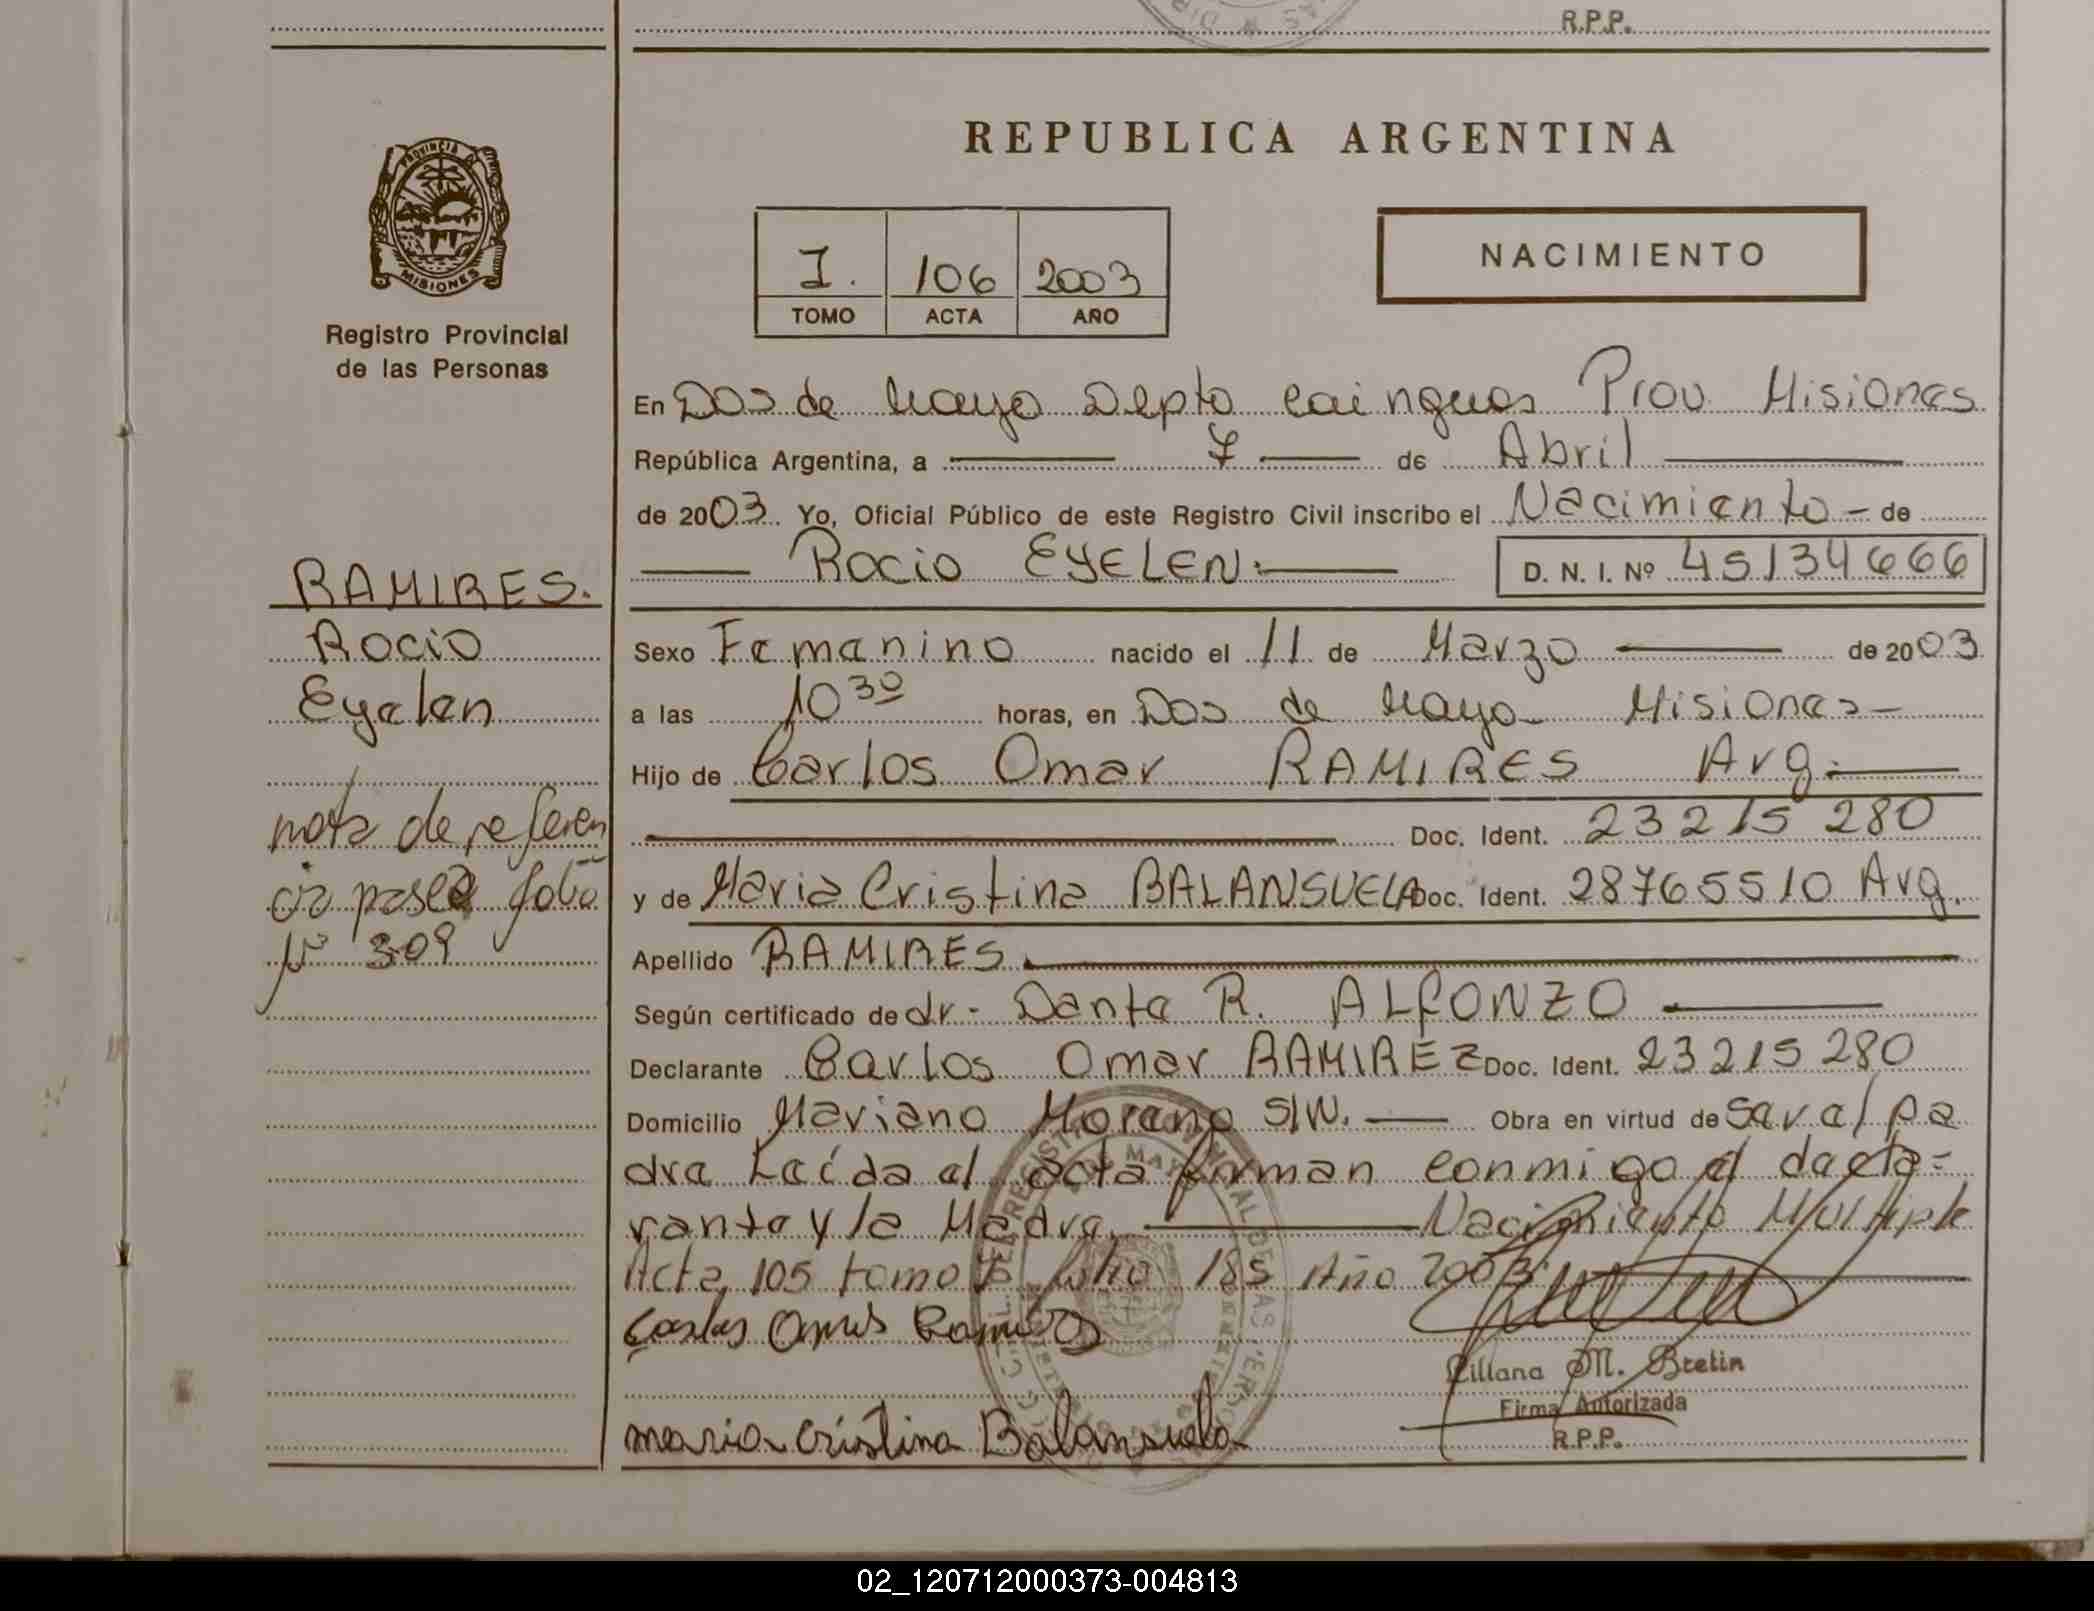 R.P.P.
REPUBLICA ARGENTINA
PROVINCIA DE
MISIONES
Registro Provincial
de las Personas
I. 106 2003
TOMO ACTA AÑO
NACIMIENTO
En Dos de Mayo Depto Cainguas Prov. Misiones
República Argentina, a 7 de Abril
de 2003. Yo, Oficial Público de este Registro Civil inscribo el Nacimiento - de
Rocio EYELEN.- D. N. I. Nº 45134666
RAMIRES.
Rocio
Eyelen
nota de referen
cia pasea folio
Nº 309
Sexo Femenino nacido el 11 de Marzo de 2003
a las 10 30 horas, en Dos de Mayo - Misiones -
Hijo de Carlos Omar RAMIRES Arg.-
Doc. Ident. 23215280
y de Maria Cristina BALANSUELA Doc. Ident. 28765510 Arg.
Apellido RAMIRES.
Según certificado de dr- Dante R. ALFONZO
Declarante Carlos Omar RAMIREZ Doc. Ident. 23215280
Domicilio Mariano Moreno S/N. Obra en virtud de Ser el pa
dre Leída el acta firman conmigo el decla=
rante y la Madre. Nacimiento Multiple
Acta 105 tomo I folio 185 Año 2003
Carlos Omar Ramires
Liliana M. Bretin
Firma Autorizada
R.P.P.
maria cristina Balansuela
02_120712000373-004813